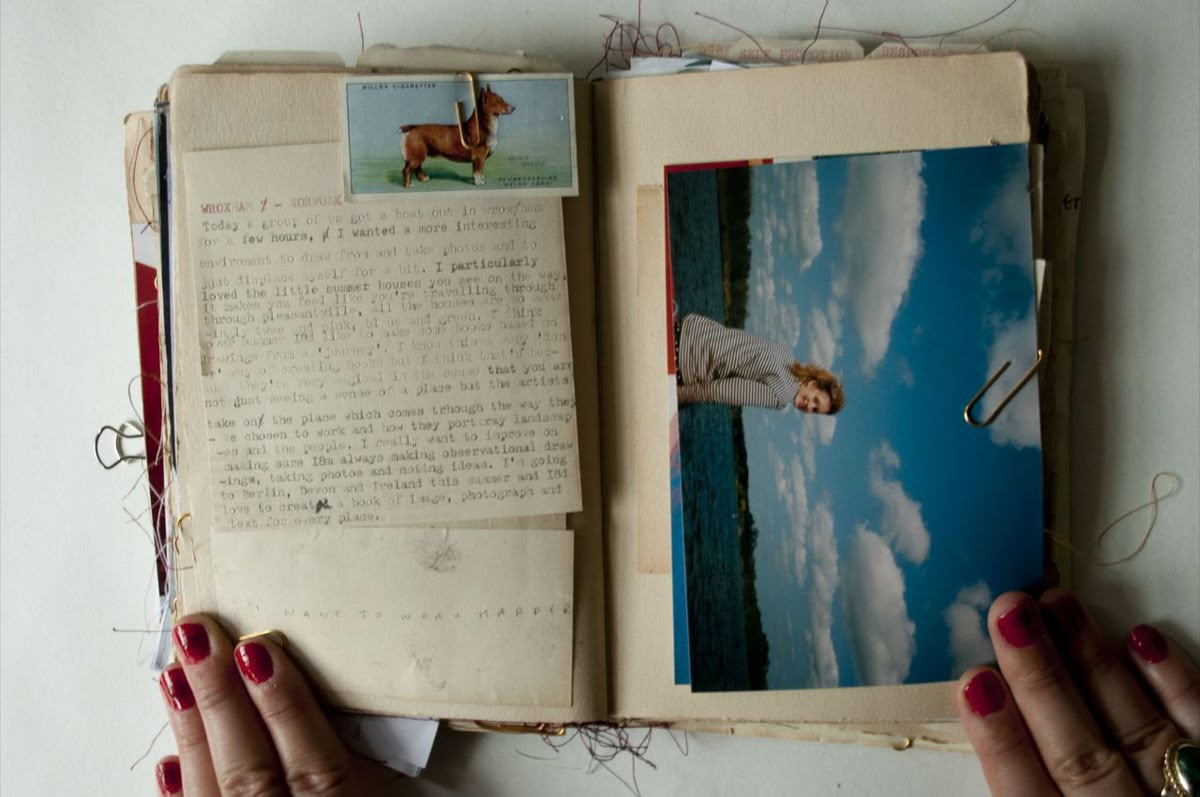 SELF PROMOTION
BESPOKE
WILLS'S CIGARETTES
PEMBROKESHIRE
WELSH CORGI
WROXHAM / - NORFOLK
Today a group of us got a boat out in wrox/ham
for a few hours, / I wanted a more interesting
enviroment to draw from and take photos and to
just displace myself for a bit. I particularly
loved the little summer houses you see on the way,
it makes you feel like you're travelling through
through pleasantville, all the houses are so
-ingly twee and pink, blue and green. I think
over summer I8d like to make some books based on
drawings from a 'journey'. I know this a very 'don
way of creating books but I think that's
they're very magical in the sense that you are
not just seeing a sense of a place but the artists
take on/ the place which comes trhough the way they
-ve chosen to work and how they portray landscap
-es and the people. I really want to improve on
making sure I8m always making observational draw
-ings, taking photos and noting ideas. I'm going
to Berlin, Devon and Ireland this summer and I8d
love to create a book of image, photograph and
text for every place.
I WANT TO WORK HARDER